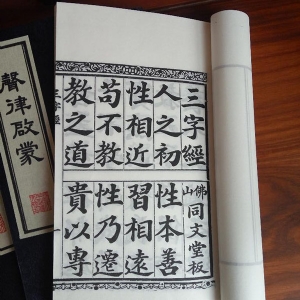 三字經 佛山同文堂板
人之初 性本善
性相近 習相遠
苟不教 性乃遷
教之道 貴以專
三字經
聲律啟蒙